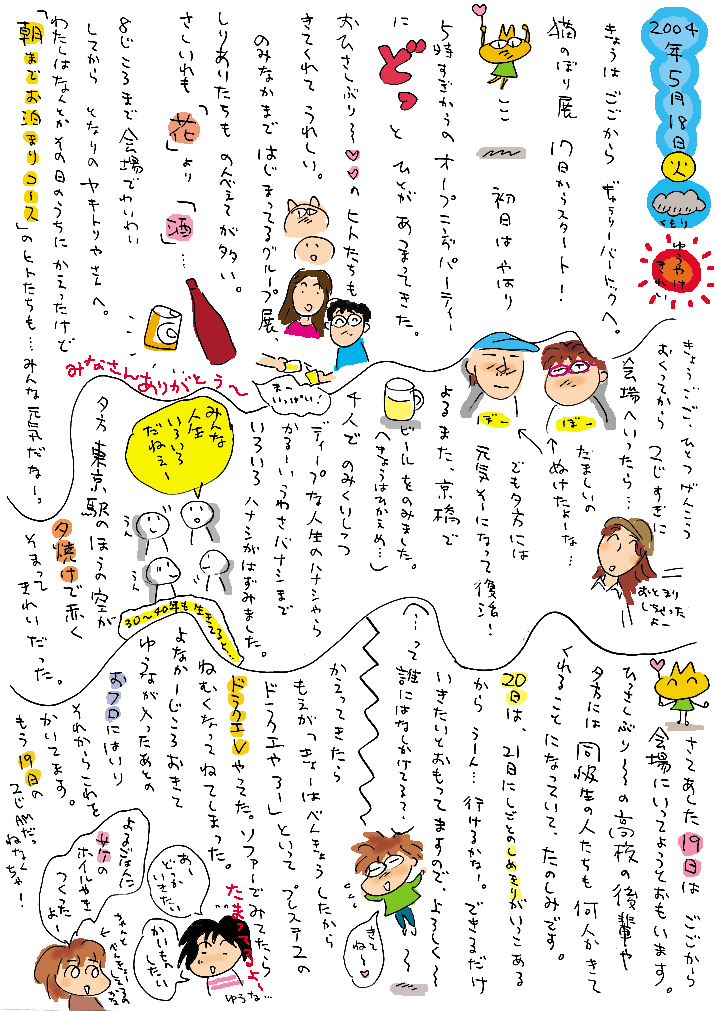 2004年5月18日火
くもり
ゆうやけ
きれい
きょうは ごごから ギャラリーバートックへ。
猫のぼり展 17日からスタート!
ここ
初日は やはり
5時すぎからの オープニングパーティー
に どっ と ひとが あつまってきた。
おひさしぶり〜♡♡の ヒトたちも
きてくれて うれしい。
のみなかまで はじまってるグループ展、
しりありたちも のんべえてが多い。
さしいれも「花」より「酒」…
8じころまで会場でわいわい
してから となりの ヤキトリやさんへ。
わたしはなんとかその日のうちに かえったけど
「朝までお泊まりコース」のヒトたちも…みんな元気だなー。
みなさんありがとう〜
きょうごご、ひとつげんこう
おくってから 2じすぎに
会場へいったら…
おとまり
しちゃった
よー
たましいの
ぬけたよーな…
ぼー
ぼー
でも夕方には
元気そーになって復活!
よるまた、京橋で
ビールをのみました。
(きょうはひかえめ…)
まっ
いっぱい!
4人で のみくいしつつ
ディープな人生のハナシやら
かるーいうわさバナシまで
いろいろ ハナシがはずみました。
みんな
人生
いろいろ
だねえー
うん
うん
30〜40年も生きてると…
夕方 東京駅のほうの空が
夕焼けで赤く
そまって きれいだった。
さてあした19日は ごごから
会場にいってようとおもいます。
ひさしぶり〜の高校の後輩や
夕方には 同級生の人たちも 何人かきて
くれることになっていて、たのしみです。
20日は、21日にしごとのしめきりがいっこある
から うーん…行けるかなー。できるだけ
いきたいとおもってますので、よろしく〜
〜…って 誰にはなしかけてる?、
きて
ね〜♡
かえってきたら
もえがっきょーはべんきょうしたから
ドラクエやろー」といって プレステ2の
ドラクエVやってた。ソファーでみてたら
ねむくなってねてしまった。
よなかーじころ おきて
ゆうながスったあとの
おフロにはいり
それからこれを
かいてます。
もう19日の
2じ前だ。
ねなくちゃ!
よるごはんに
サケの
ホイルやき
つくったよー
あー
どっか
いきたい
かいもの
したい
たまってるよ〜
ゆうな…